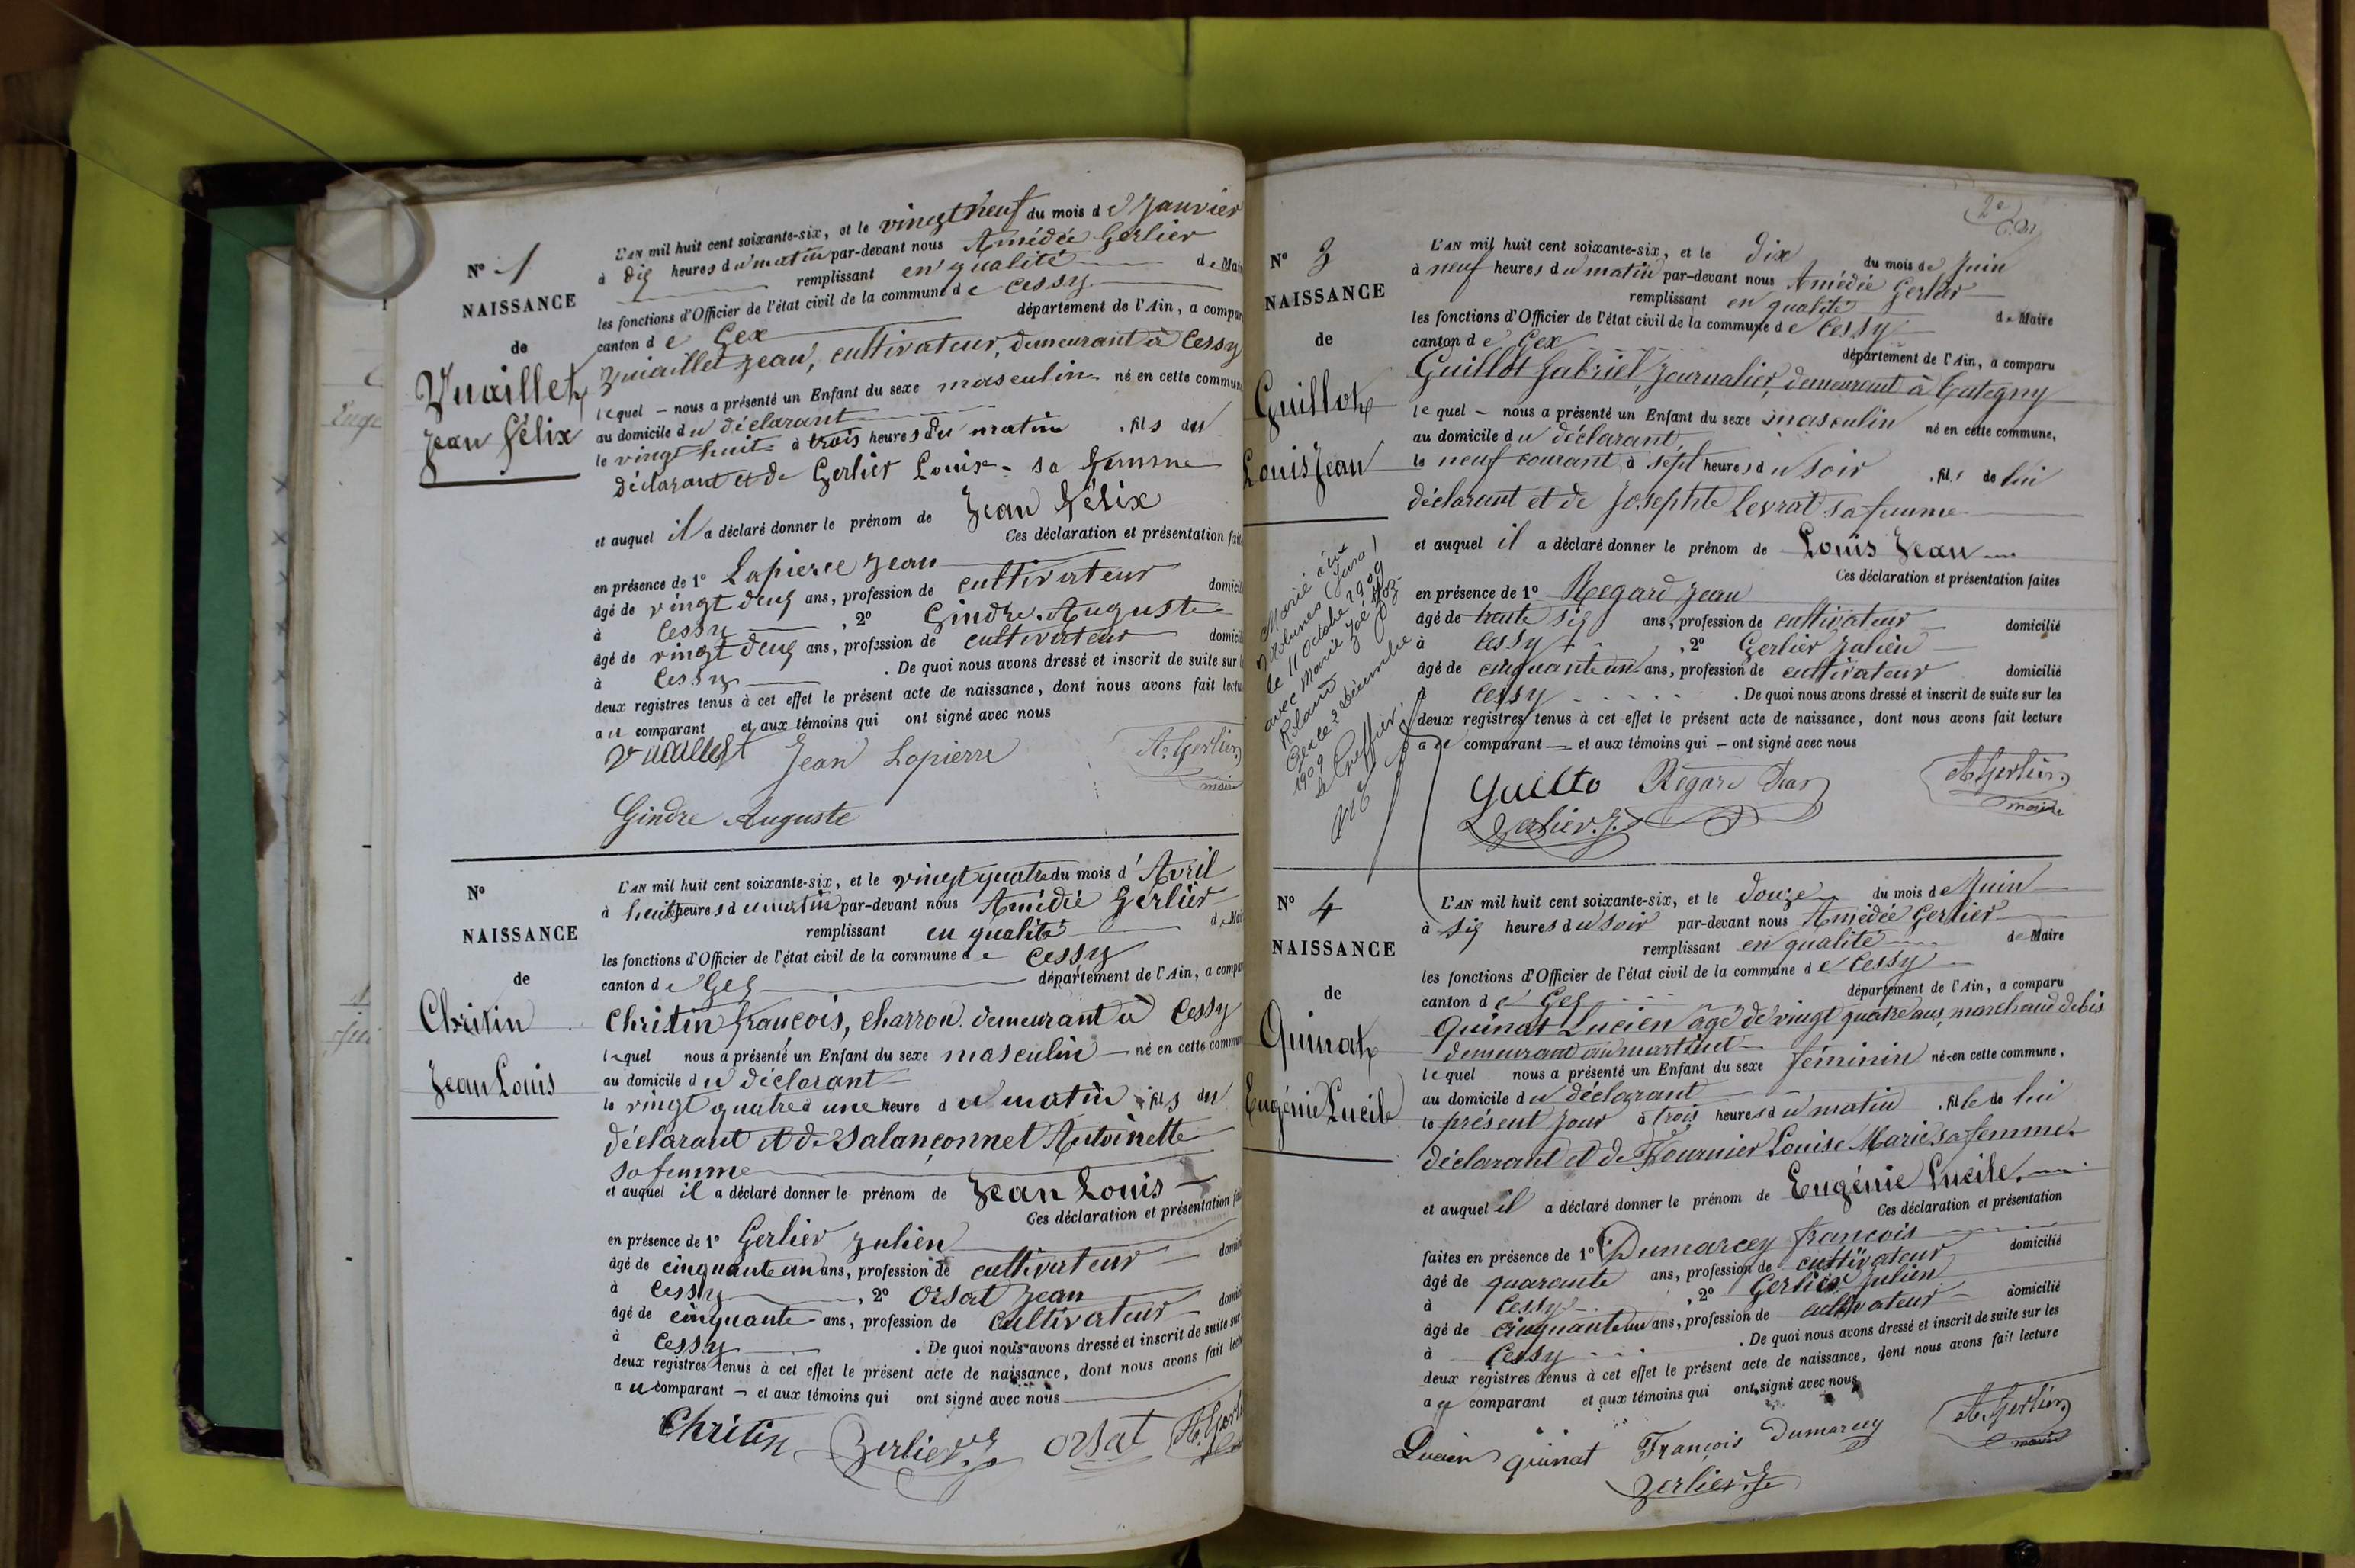 N° 1
NAISSANCE
de
Vuaillet
Jean Félix
L'AN mil huit cent soixante-six, et le vingt neuf du mois de Janvier
à dix heures du matin par-devant nous Amédée Gerlier
remplissant en qualité de Mair
les fonctions d'Officier de l'état civil de la commune de Cessy
canton de Gex département de l'Ain, a compar
Vuaillet Jean, cultivateur, demeurant à Cessy
lequel nous a présenté un Enfant du sexe masculin né en cette commune
au domicile du déclarant
le vingt huit à trois heures du matin, fils du
déclarant et de Gerlier Louise sa femme
et auquel il a déclaré donner le prénom de Jean Félix
Ces déclaration et présentation faite
en présence de 1° Lapierre Jean
âgé de vingt deux ans, profession de cultivateur domicil
à Cessy, 2° Gindre Auguste
âgé de vingt deux ans, profession de cultivateur domicil
à Cessy. De quoi nous avons dressé et inscrit de suite sur l
deux registres tenus à cet effet le présent acte de naissance, dont nous avons fait lectu
au comparant et aux témoins qui ont signé avec nous
Vuaillet Jean Lapierre A. Gerlier
maire
Gindre Auguste
N°
NAISSANCE
de
Christin
Jean Louis
L'AN mil huit cent soixante-six, et le vingt quatre du mois d'Avril
à huit heures du matin par-devant nous Amédée Gerlier
remplissant en qualité de Mair
les fonctions d'Officier de l'état civil de la commune de Cessy
canton de Gex département de l'Ain, a compar
Christin françois, charron demeurant à Cessy
lequel nous a présenté un Enfant du sexe masculin né en cette commun
au domicile du déclarant
le vingt quatre à une heure du matin, fils du
déclarant et de Salançonnet Antoinette
sa femme
et auquel il a déclaré donner le prénom de Jean Louis
Ces déclaration et présentation fai
en présence de 1° Gerlier Julien
âgé de cinquante un ans, profession de cultivateur domici
à Cessy, 2° Orsat Jean
âgé de cinquante ans, profession de cultivateur domici
à Cessy. De quoi nous avons dressé et inscrit de suite sur
deux registres tenus à cet effet le présent acte de naissance, dont nous avons fait lectu
au comparant et aux témoins qui ont signé avec nous
Christin Gerlier J. Orsat A. Gerl
2e
N° 3
NAISSANCE
de
Guillot
Louis Jean
L'AN mil huit cent soixante-six, et le dix du mois de Juin
à neuf heures du matin par-devant nous Amédée Gerlier
remplissant en qualité de Maire
les fonctions d'Officier de l'état civil de la commune de Cessy
canton de Gex département de l'Ain, a comparu
Guillot Gabriel Journalier, demeurant à Cutegny
lequel nous a présenté un Enfant du sexe masculin né en cette commune,
au domicile du déclarant,
le neuf courant, à sept heures du soir, fils de lui
déclarant et de Josephte Levrat sa femme
et auquel il a déclaré donner le prénom de Louis Jean
Ces déclaration et présentation faites
en présence de 1° Regard Jean
âgé de trente six ans, profession de cultivateur domicilié
à Cessy, 2° Gerlier Julien
âgé de cinquante un ans, profession de cultivateur domicilié
à Cessy. De quoi nous avons dressé et inscrit de suite sur les
deux registres tenus à cet effet le présent acte de naissance, dont nous avons fait lecture
au comparant et aux témoins qui ont signé avec nous
Guillto Regard Jean A Gerlier
Gerlier. J. maire
Marié aux
(Jura)
le 11 octobre 1909
avec Marie Zoé
Gex le 2 décembre
1909
Le Greffier.
N° 4
NAISSANCE
de
Quinat
Eugénie Lucile
L'AN mil huit cent soixante-six, et le douze du mois de Juin
à six heures du soir par-devant nous Amédée Gerlier
remplissant en qualité de Maire
les fonctions d'Officier de l'état civil de la commune de Cessy
canton de Gex département de l'Ain, a comparu
Quinat Lucien âgé de vingt quatre ans, marchand de bois
demeurant au martinet
lequel nous a présenté un Enfant du sexe féminin né en cette commune,
au domicile du déclarant
le présent jour à trois heures du matin, fille de lui
déclarant et de Fournier Louise Marie sa femme
et auquel il a déclaré donner le prénom de Eugénie Lucile.
Ces déclaration et présentation
faites en présence de 1° Dumarcey françois
âgé de quarante ans, profession de cultivateur domicilié
à Cessy, 2° Gerlier Julien
âgé de cinquante un ans, profession de cultivateur domicilié
à Cessy. De quoi nous avons dressé et inscrit de suite sur les
deux registres tenus à cet effet le présent acte de naissance, dont nous avons fait lecture
au comparant et aux témoins qui ont signé avec nous
Lucien quinat François Dumarcey A. Gerlier
Gerlier. J. maire